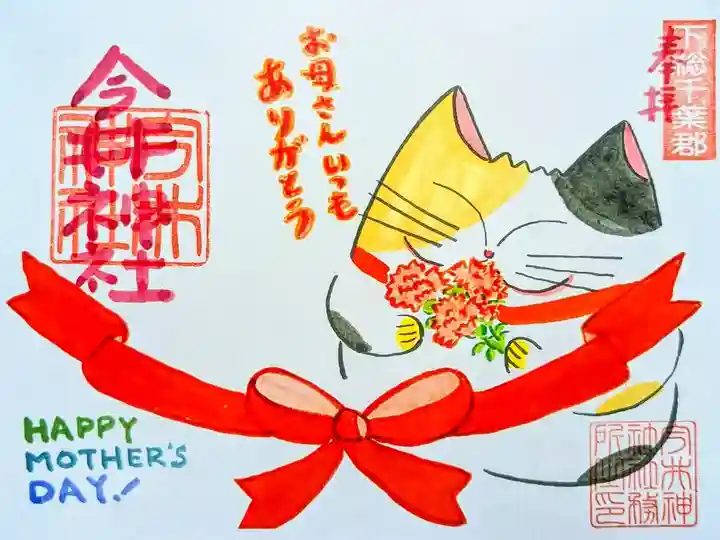 奉拝
下総千葉郡
お母さんいつも
ありがとう
今井神社
今井神社
HAPPY
MOTHER'S
DAY!
今井神
社社務
所之印